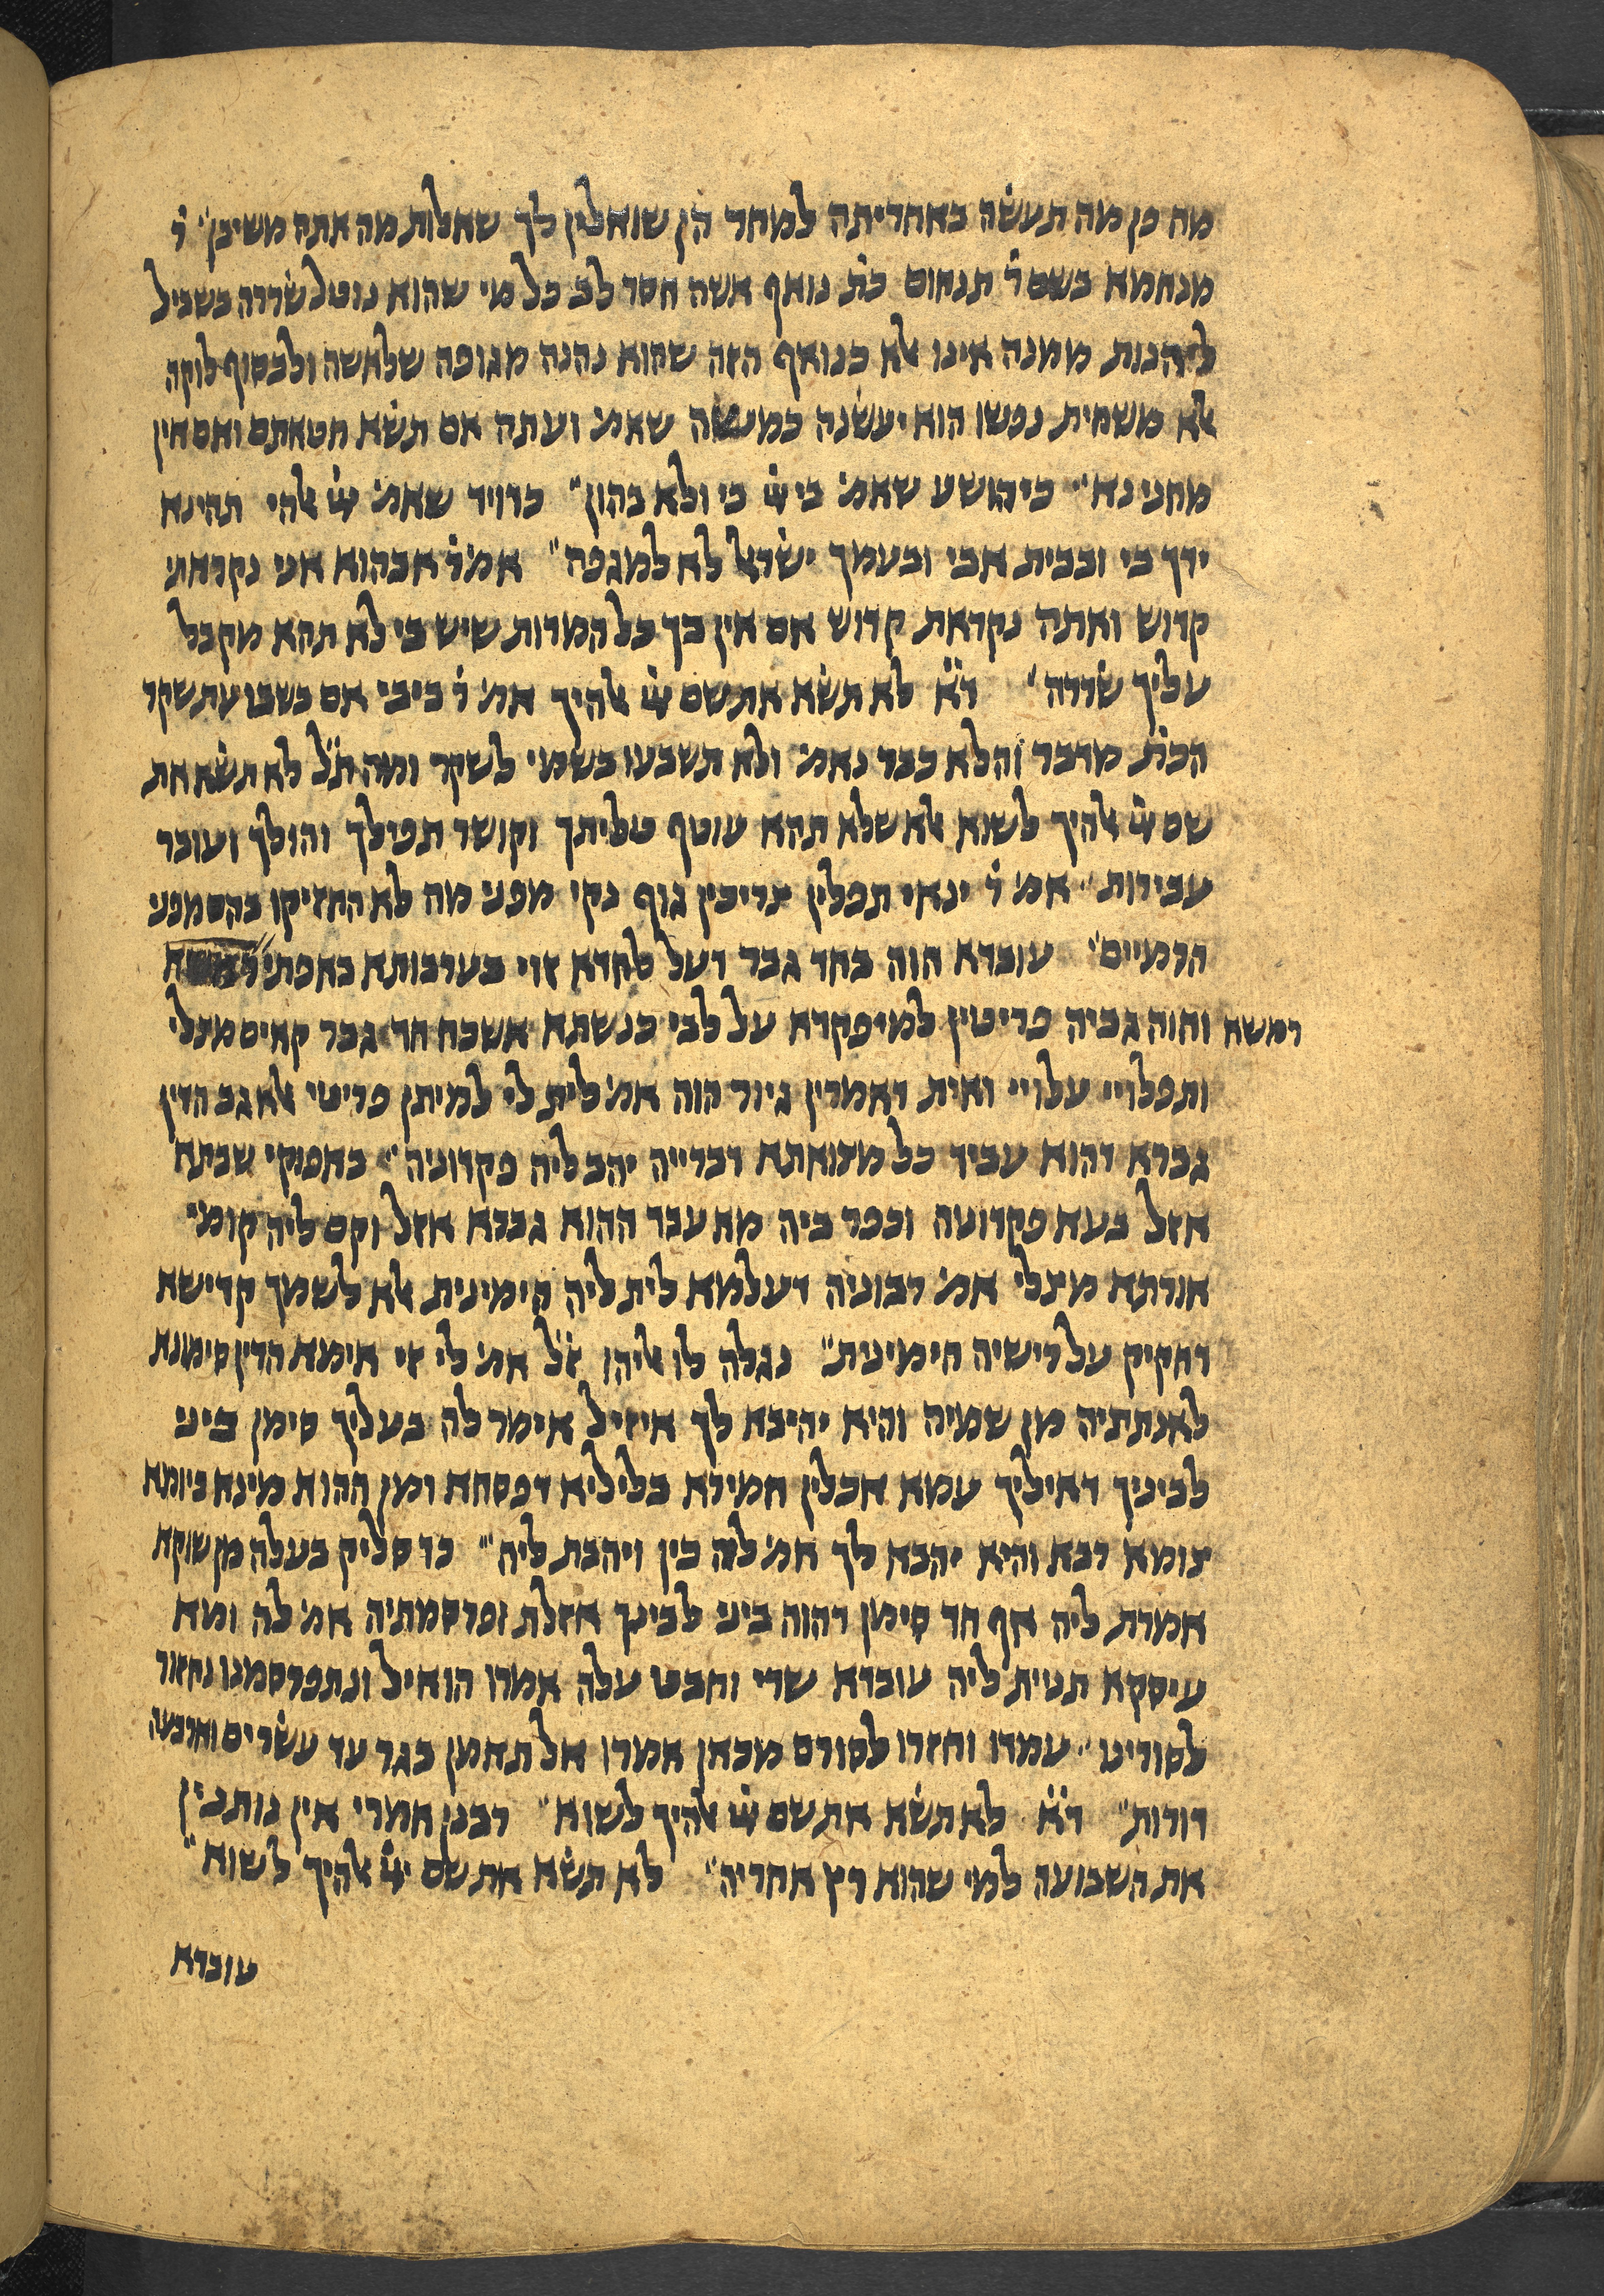 מה כן מה תעשה באחריתה למחר הן שואלין לך שאלות מה אתה משיבן״ ר׳
מנחמא בשם ר׳ תנחום כת׳ נואף אשה חסר לב כל מי שהוא נוטל שררה בשביל
ליהנות ממנה אינו אלא כנואף הזה שהוא נהנה מגופה שלאשה ולבסוף לוקה
אלא משחית נפשו הוא יעשנה כמשה שאמ׳ ועתה אם תשא חטאתם ואם אין
מחני נא״ כיהושע שאמ׳ בי יי׳ בי ולא בהון״ כדויד שאמ׳ יי׳ אלהי תהי נא
ידך בי ובבית אבי ובעמך ישראל לא למגפה״ אמ׳ ר׳ אבהוא אני נקראתי
קדוש ואתה נקראת קדוש אם אין בך כל המדות שיש בי לא תהא מקבל
עליך שררה״ ד״א לא תשא את שם יי׳ אלהיך אמ׳ ר׳ ביבי אם בשבועת שקר
הכת׳ מדבר והלא כבר נאמ׳ ולא תשבעו בשמי לשקר ומה ת״ל לא תשא את
שם יי׳ אלהיך לשוא אלא שלא תהא עוטף טליתך וקושר תפילך והולך ועובר
עבירות״ אמ׳ ר׳ ינאי תפלין צריכין גוף נקי מפני מה לא החזיקו בהם מפני
הרמיים״ עובדא הוה בחד גבר דעל לחדא זוי בערבותא באפתי
רמשא והוה גביה פריטין למיפקדא על לבי כנשתא אשכח חד גבר קאים מצלי
ותפלויי עלויי ואית דאמרין גיור הוה אמ׳ לית לי למיתן פריטי אלא גב הדין
גברא דהוא עביד כל מצואתא דברייה יהב ליה פקדוניה״ באפוקי שבתא
אזל בעא פקדונה וכפר ביה מה עבד ההוא גברא אזל וקם ליה קומי
אורתא מצלי אמ׳ רבוניה דעלמא לית ליה הימינית אלא לשמך קדישא
דחקיק על רישיה הימינית״ נגלה לו אליהו ז״ל אמ׳ לי זי אימא הדין סימונא
לאנתתיה מן שמיה והיא יהיבא לך איזיל אימר לה בעליך סימן ביני
לביניך דאיליך עמא אכלין חמירא בליליא דפסחא ומן ההוא מינא ביומא
צומא רבא והיא יהבא לך אמ׳ לה כין ויהבת ליה״ כד סליק בעלה מן שוקא
אמרת ליה אף חד סימן דהוה ביני לבינך אזלת ופרסמתיה אמ׳ לה ומא
עיסקא תנית ליה עובדא שרי וחבט עלה אמרו הואיל ונתפרסמנו נחזור
לסורינו״ עמדו וחזרו לסורם מכאן אמרו אל תאמן בגר עד עשרים וארבעה
דורות״ ד״א לא תשא את שם יי׳ אלהיך לשוא״ רבנן אמרי אין נותנין
את השבועה למי שהוא רץ אחריה״ לא תשא את שם יי׳ אלהיך לשוא״
עובדא